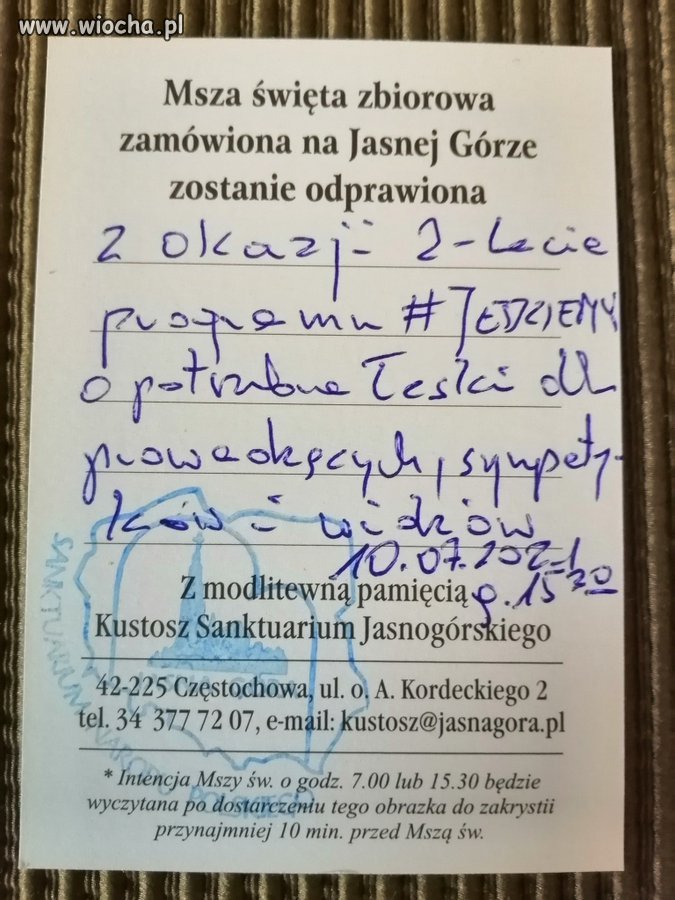 www.wiocha.pl
Msza święta zbiorowa
zamówiona na Jasnej Górze
zostanie odprawiona
z okazji 2-lecie
programu #JEDZIEMY
o potrzebne łaski dla
prowadzących, sympaty-
ków i widzów
10.07.2021
g. 15 30
Z modlitewną pamięcią
Kustosz Sanktuarium Jasnogórskiego
42-225 Częstochowa, ul. o. A. Kordeckiego 2
tel. 34 377 72 07, e-mail: kustosz@jasnagora.pl
* Intencja Mszy św. o godz. 7.00 lub 15.30 będzie
wyczytana po dostarczeniu tego obrazka do zakrystii
przynajmniej 10 min. przed Mszą św.
SANKTUARIUM NARODU POLSKIEGO